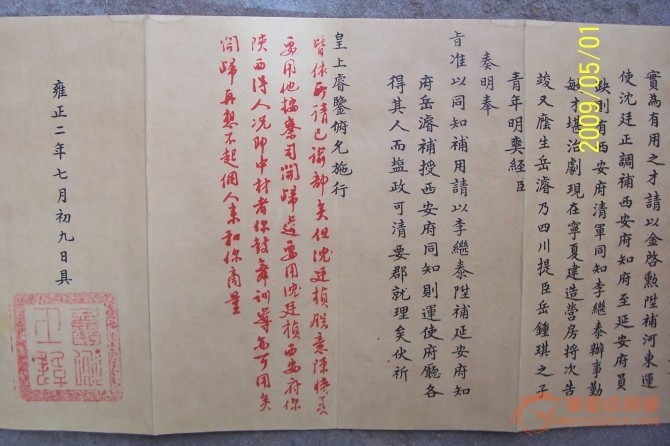 實為有用之才請以金啓勲陞補河東運
使沈廷正調補西安府知府至延安府員
缺則有西安府清軍同知李繼泰辦事勤
敏才堪治劇現在寧夏建造營房將次告
竣又廕生岳濬乃四川提臣岳鍾琪之子
青年明爽經臣
奏明奉
旨准以同知補用請以李繼泰陞補延安府知
府岳濬補授西安府同知則運使府廳各
得其人而鹽政可清要郡就理矣伏祈
皇上睿鑒俯允施行
皆依所請已諭部矣但沈廷楨朕意陳時夏
要用他按察司開歸道要用沈廷楨西安府你
陝西得人況即中材者你鼓舞訓導亦可用矣
開歸再想不起個人來和你商量
雍正二年七月初九日具
2009/05/01